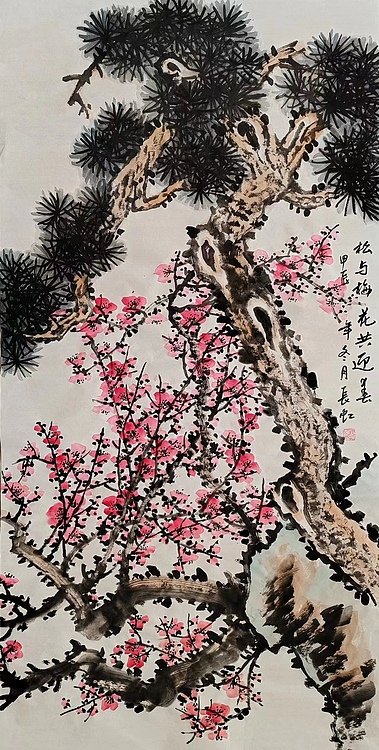 松与梅花共迎春
甲辰年冬月長虹